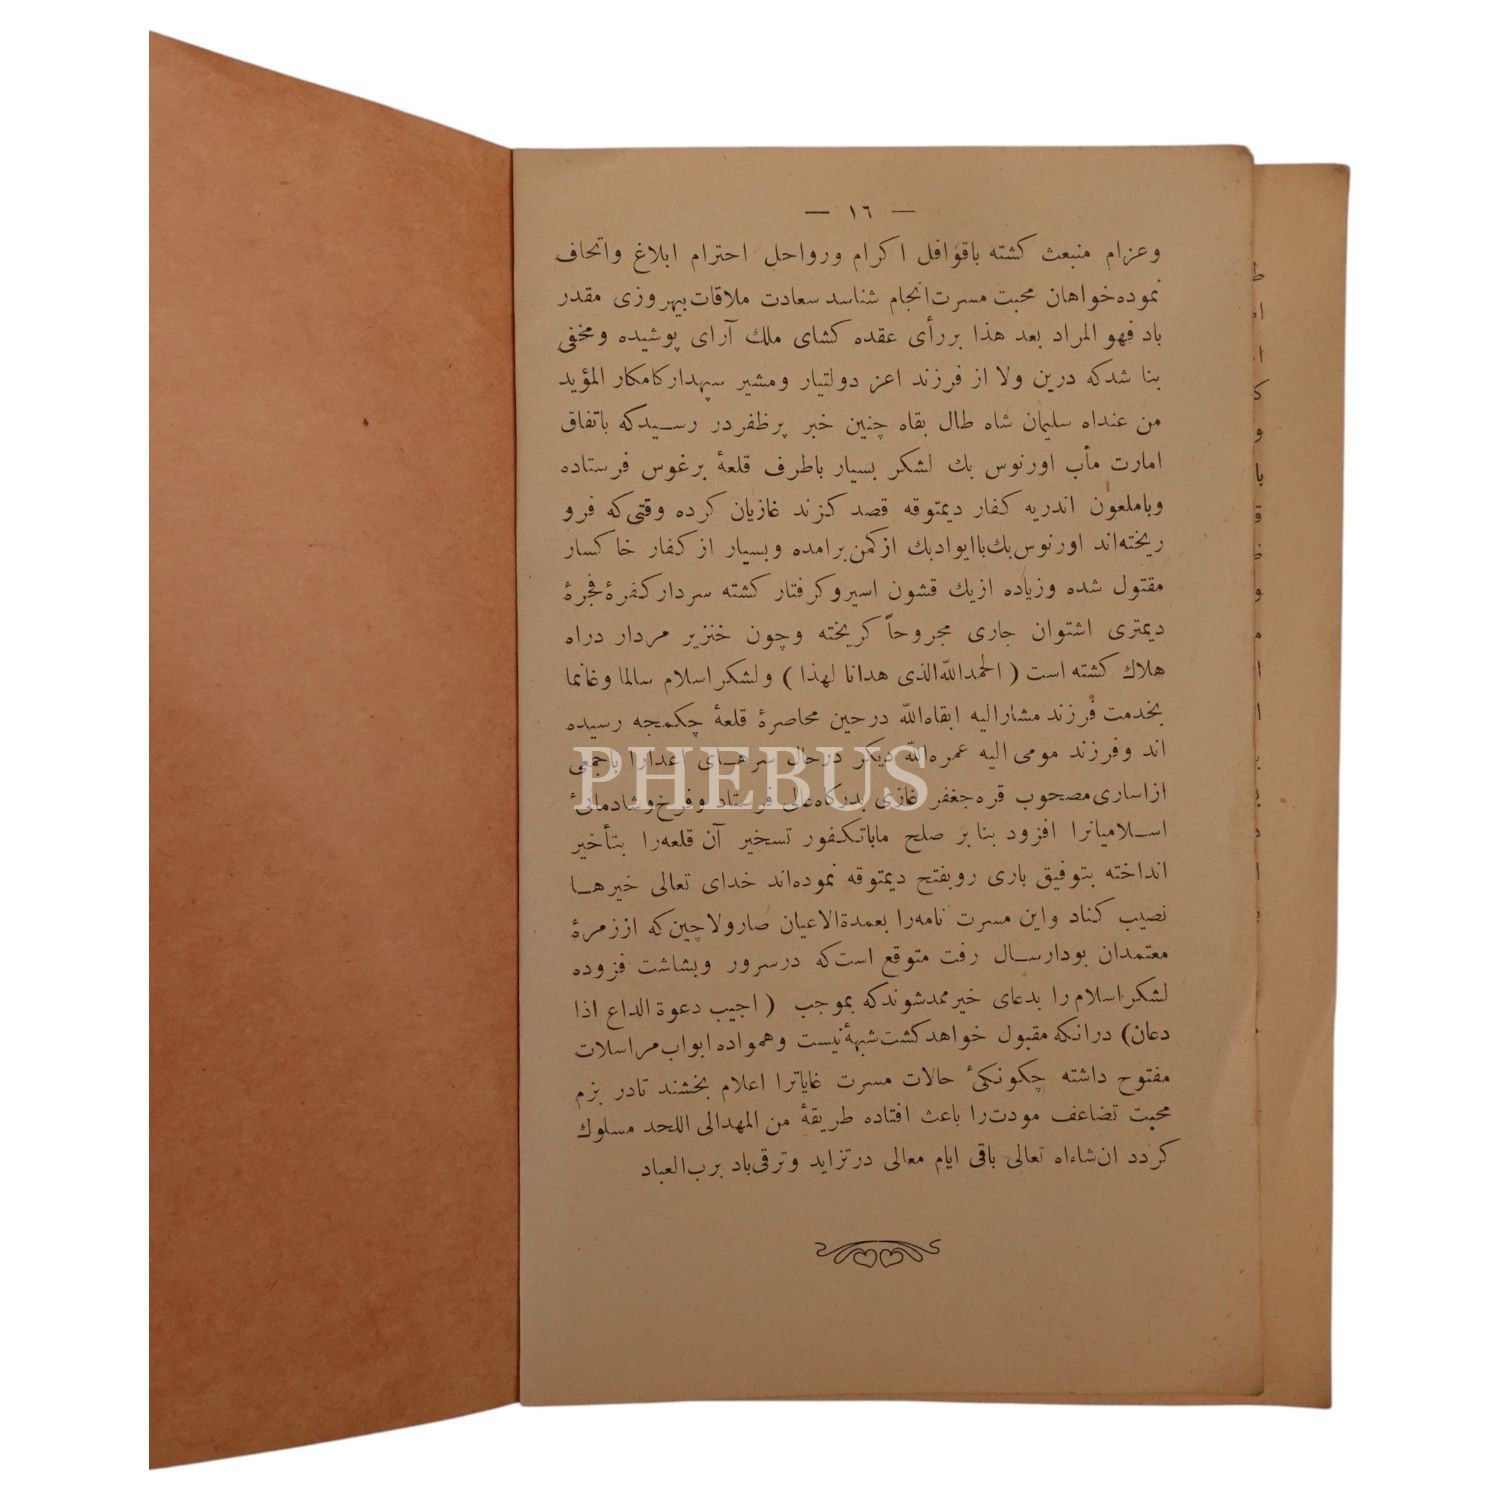 — ١٦ —
وعزام منبعث كشته باقوافل اكرام ورواحل احترام ابلاغ واتحاف
نموده‌خواهان محبت مسرت‌انجام شناسد سعادت ملاقات‌بهروزی مقدر
باد فهو المراد بعد هذا بررأی عقده كشای ملك آرای پوشیده ومخفی
بنا شدكه درین ولا از فرزند اعز دولتیار ومشیر سپهداركامكار المؤید
من عنداه سلیمان شاه طال بقاه چنین خبر پرظفردر رسیدكه باتفاق
امارت مأب اورنوس بك لشكر بسیار باطرف قلعهٔ برغوس فرستاده
وباملعون اندریه كفار دیمتوقه قصد كزند غازیان كرده وقتی‌كه فرو
ریخته‌اند اورنوس‌بك‌باایوادبك ازكمن‌برامده وبسیار ازكفار خاكسار
مقتول شده وزیاده ازیك قشون اسیروكرفتار كشته سرداركفرهٔ‌فجرهٔ
دیمتری اشتوان جاری مجروحاً كریخته وچون خنزیر مردار دراه
هلاك كشته‌است ( الحمدالله‌الذی هدانا لهذا ) ولشكراسلام سالما وغانما
بخدمت فرزند مشارالیه ابقاه‌الله درحین محاصرهٔ قلعهٔ چكمجه رسیده
اند وفرزند مومی‌الیه عمره‌الله دیكر درحال سرهای عدارا باجمعی
ازاساری‌مصحوب قره‌جغفر غازی بدركاه‌عالی فرستاد وفرخ‌وشادمانئ
اسلامیانرا افزود بنا بر صلح ماباتكفور تسخیر آن قلعه‌را بتأخیر
انداخته بتوفیق باری روبفتح دیمتوقه نموده‌اند خدای تعالی خیرها
نصیب كناد واین مسرت نامه‌را بعمدةالاعیان صارولاچین‌كه اززمرهٔ
معتمدان بودارسال رفت متوقع است‌كه درسرور وبشاشت فزوده
لشكراسلام‌را بدعای خیرممدشوندكه بموجب ( اجیب دعوة الداع اذا
دعان) درانكه مقبول خواهدكشت‌شبههٔ‌نیست وهمواده ابواب‌مراسلات
مفتوح داشته چكونكئ حالات مسرت غایاترا اعلام بخشند تادر بزم
محبت تضاعف مودت‌را باعث افتاده طریقهٔ من المهدالی اللحد مسلوك
كردد ان‌شاءاه تعالی باقی ایام معالی درتزاید وترقی‌باد برب‌العباد
PHEBUS